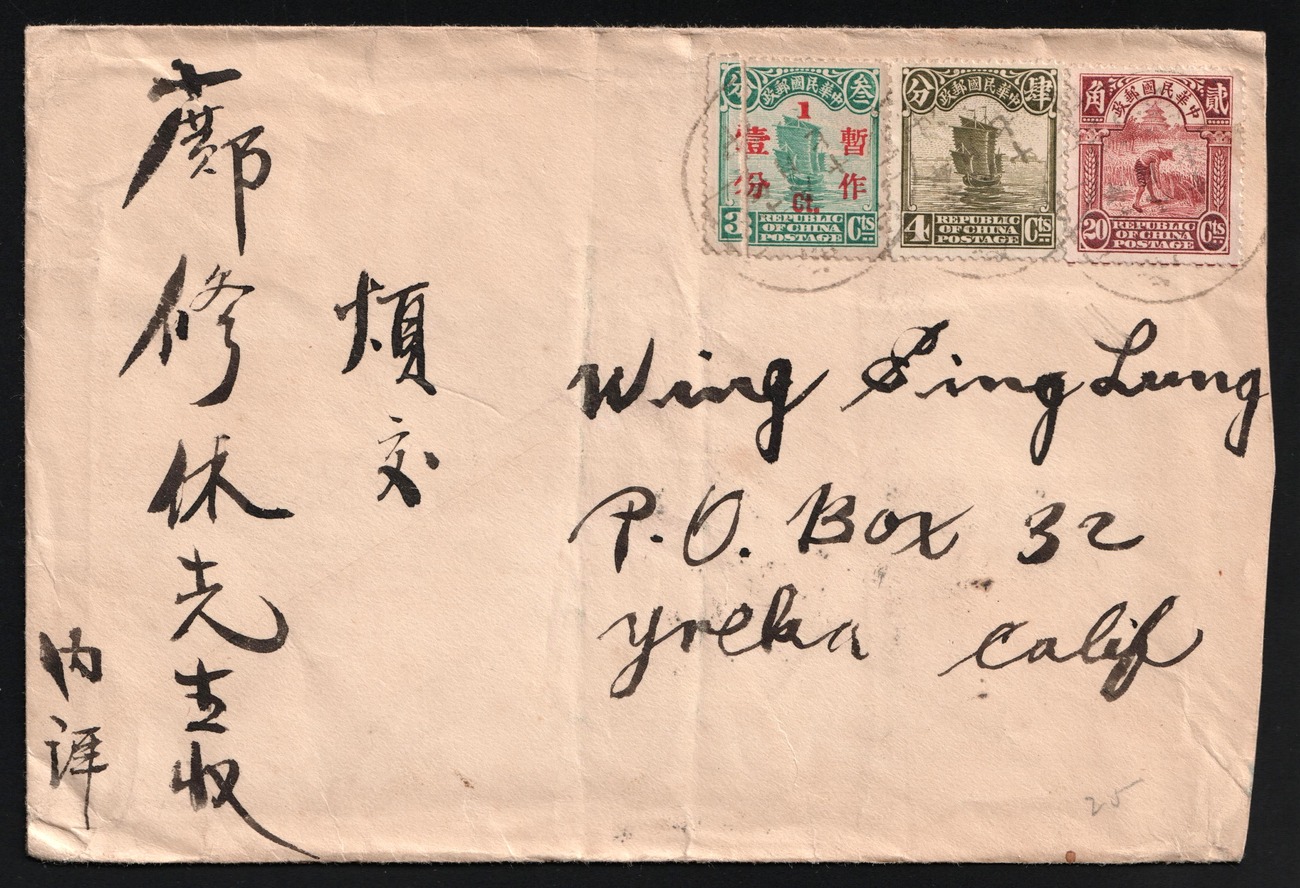 中華民國郵政
叁
分
1
暫作
壹份
Ct.
3
REPUBLIC
OF CHINA
POSTAGE
Cts
中華民國郵政
肆
分
4
REPUBLIC
OF CHINA
POSTAGE
Cts
中華民國郵政
貳
角
20
REPUBLIC
OF CHINA
POSTAGE
Cts
Wing Sing Lung
P.O. Box 32
Yreka Calif
煩交
鄺修休先生收
內詳
25